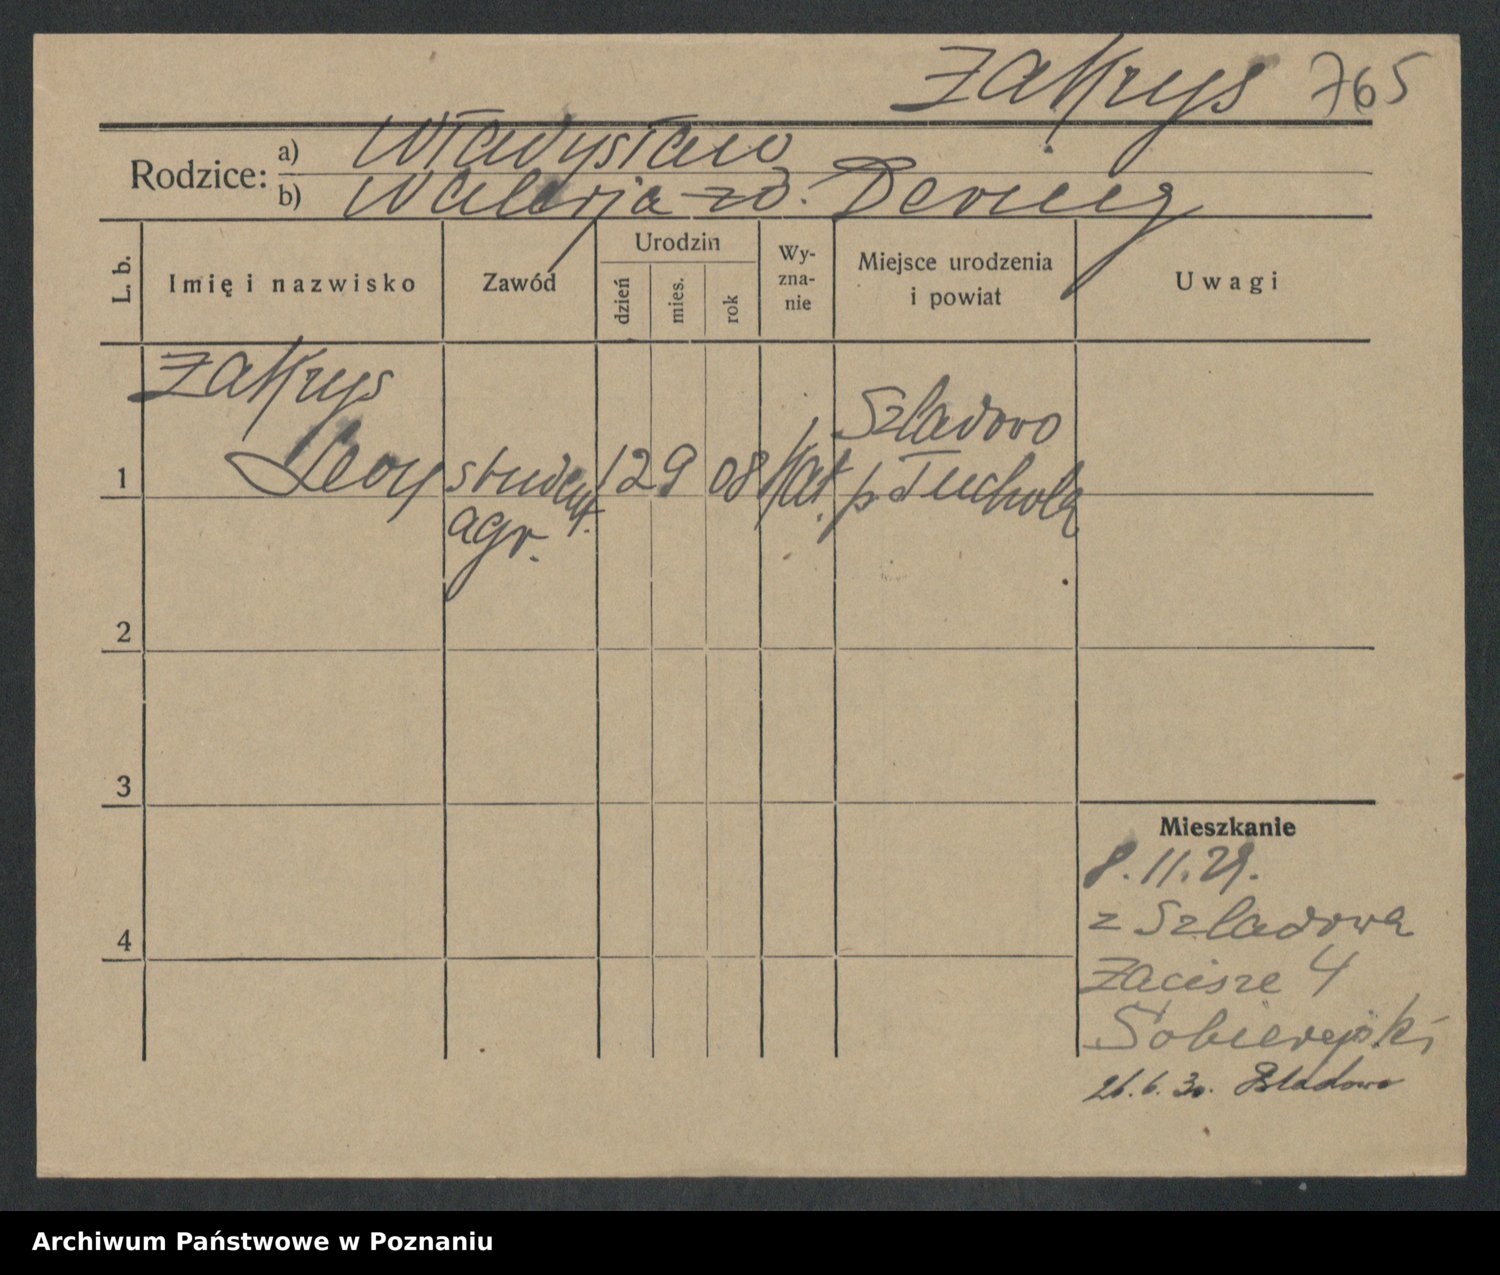 Zakrys 765
Rodzice: a) Władysław
b) Walerja zd. Dering
L. b. Imię i nazwisko Zawód Urodzin dzień mies. rok Wy-zna-nie Miejsce urodzenia i powiat Uwagi
Zakrys Szladowo
1 Leon student 12 9 08 kat. p Tuchola
agr.
2
3
Mieszkanie
8.11.29.
z Szladowa
4
Zacisze 4
Sobierejski
26.6.30. Szladowo
Archiwum Państwowe w Poznaniu